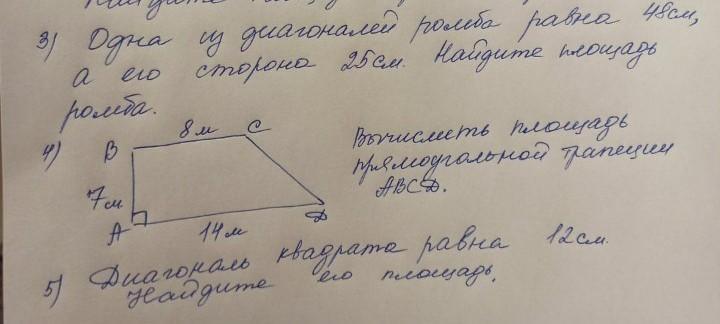 3) Одна из диагоналей ромба равна 48см,
а его сторона 25см. Найдите площадь
ромба.
4) B 8м C
7см
A 14м D
Вычислить площадь
прямоугольной трапеции
ABCD.
5) Диагональ квадрата равна 12см.
Найдите его площадь.